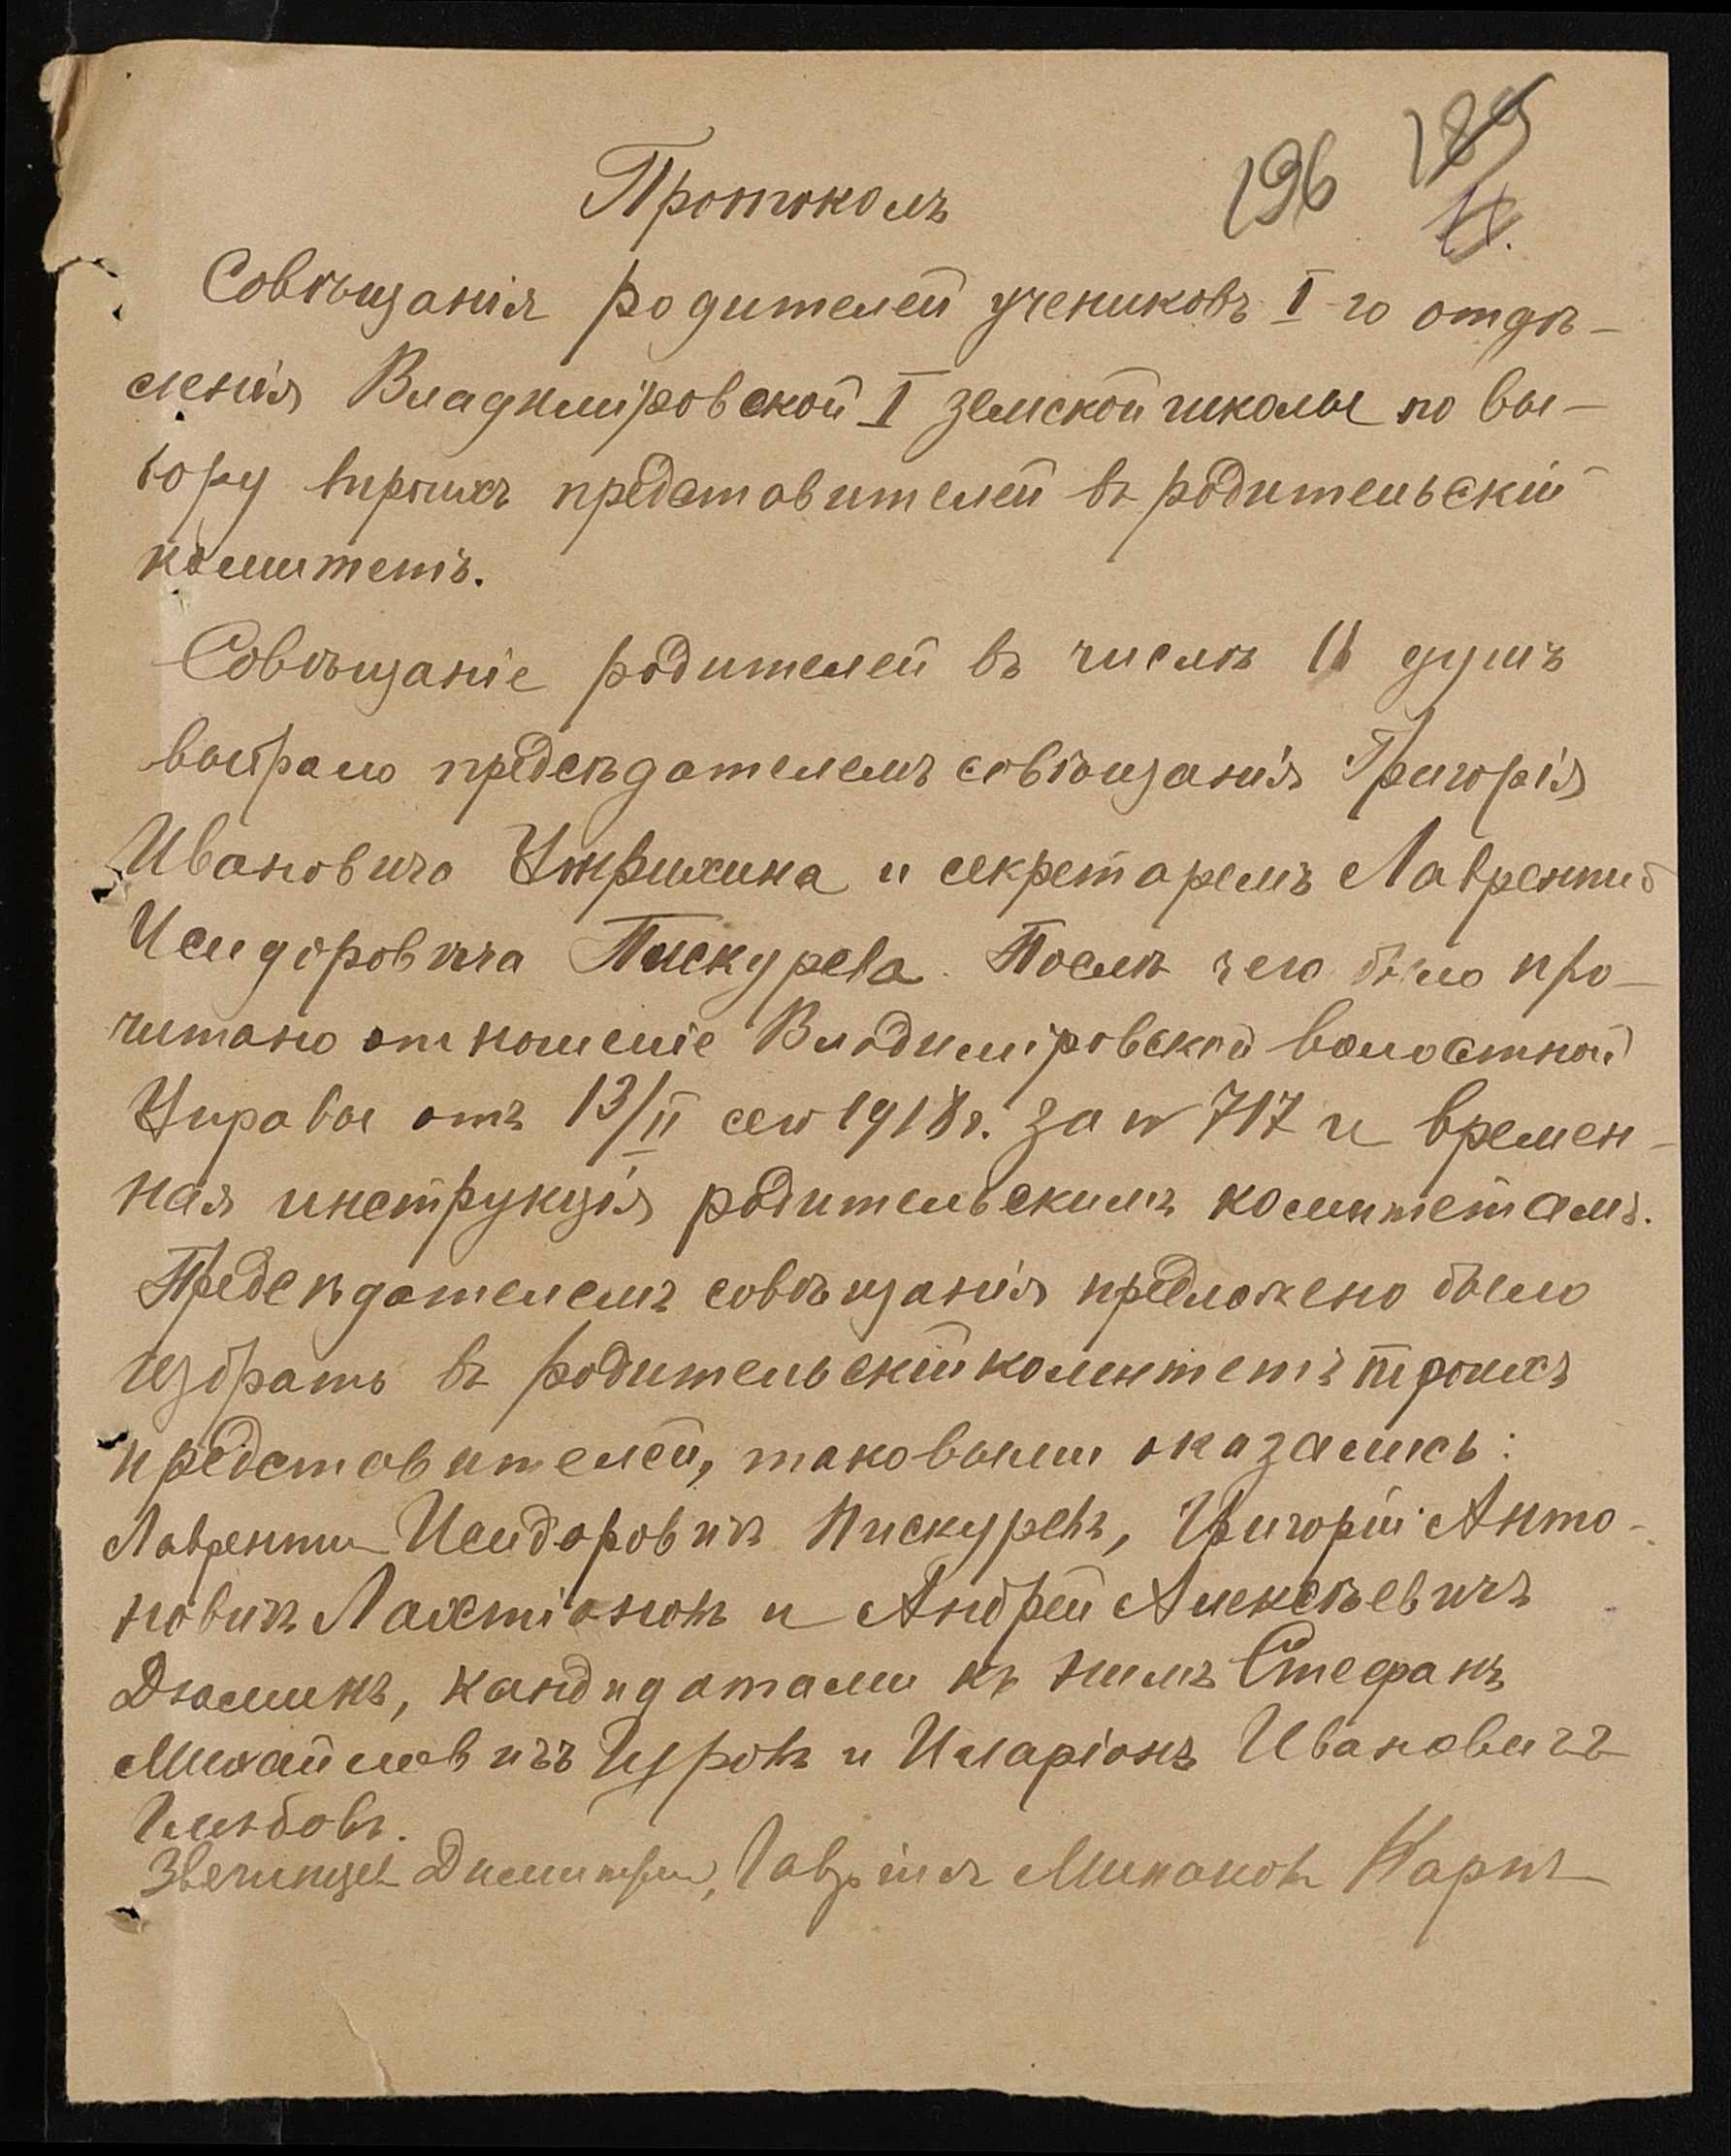 196 189
11.
Протоколъ
Совѣщанія родителей учениковъ I-го отдѣ-
ленія Владимировской I земской школы по вы-
бору троихъ представителей въ родительскій
комитетъ.
Совѣщаніе родителей въ числѣ 11 душъ
выбрало предсѣдателемъ совѣщанія Григорія
Ивановича и секретаремъ Лаврентия
Исидоровича Пискурева. Послѣ чего было про-
читано отношеніе Владимировской волостной
Управы отъ 13/II сего 1918 г. за № 717 и времен-
ная инструкція родительскимъ комитетамъ.
Предсѣдателемъ совѣщанія предложено было
избрать въ родительскій комитетъ троихъ
представителей, таковыми оказались:
Лаврентий Исидоровичъ Пискуревъ, Григорій Анто-
новичъ и Андрей Алексѣевичъ
Дюминъ, кандидатами къ нимъ Стефанъ
Михайловичъ и Иларіонъ Ивановичъ
Глѣбовъ.
Карпъ